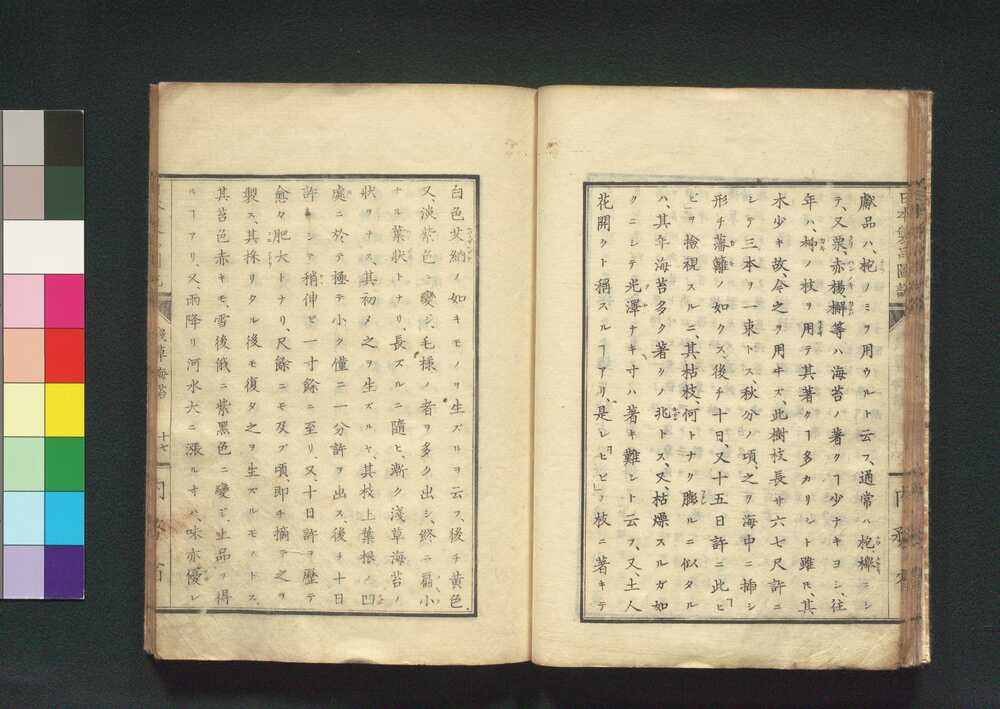 獻品ハ、枹ノミヲ用ウルト云フ、通常ハ枹欅ニシ
テ、又栗、赤楊、檞等ハ海苔ノ著クヿ少ナキヨシ、往
年ハ、柳ノ枝ヲ用テ其著クヿ多カリシト雖𪜈、其
木少キ故、今之ヲ用ヰズ、此樹枝長サ六七尺許ニ
シテ三本ヲ一束トス秋分ノ頃、之ヲ海中ニ挿シ
形チ藩籬ノ如クス、後チ十日、又十五日許ニ此「ヒ
ビ」ヲ撿視スルニ其枯枝、何トナク膨ルニ似タル
ハ、其年海苔多ク著クノ兆トス、又、枯燥スルガ如
クニシテ光澤ナキ、寸ハ著キ難シト云フ、又、土人
花開クト稱スルヿアリ、是レ「ヒビ」ノ枝ニ著キテ
白色艾納ノ如キモノヲ生ズルヲ云フ、後チ黄色
又、淡紫色ニ變ジ、毛樣ノ者ヲ多ク出シ、終ニ扁小
ナル葉狀トナリ、長ズルニ隨ヒ、漸ク淺草海苔ノ
狀ヲナス、其初メ之ヲ生ズルヤ、其枝上葉根ノ凹
處ニ於テ極テ小ク僅ニ一分許ヲ出ス後チ十日
許ニシテ稍伸ビ一寸餘ニ至リ、又、十日許ヲ歷テ
愈々肥大トナリ、尺餘ニモ及ブ頃、即チ摘テ之ヲ
製ス、其採リタル後モ復タ之ヲ生ズルモノトス、
其苔色赤キモ、雪後俄ニ紫黑色ニ變ジ、上品ヲ得
ルヿアリ、又、雨降リ河水大ニ漲ル寸ハ、味亦優レ
淺草海苔
十七